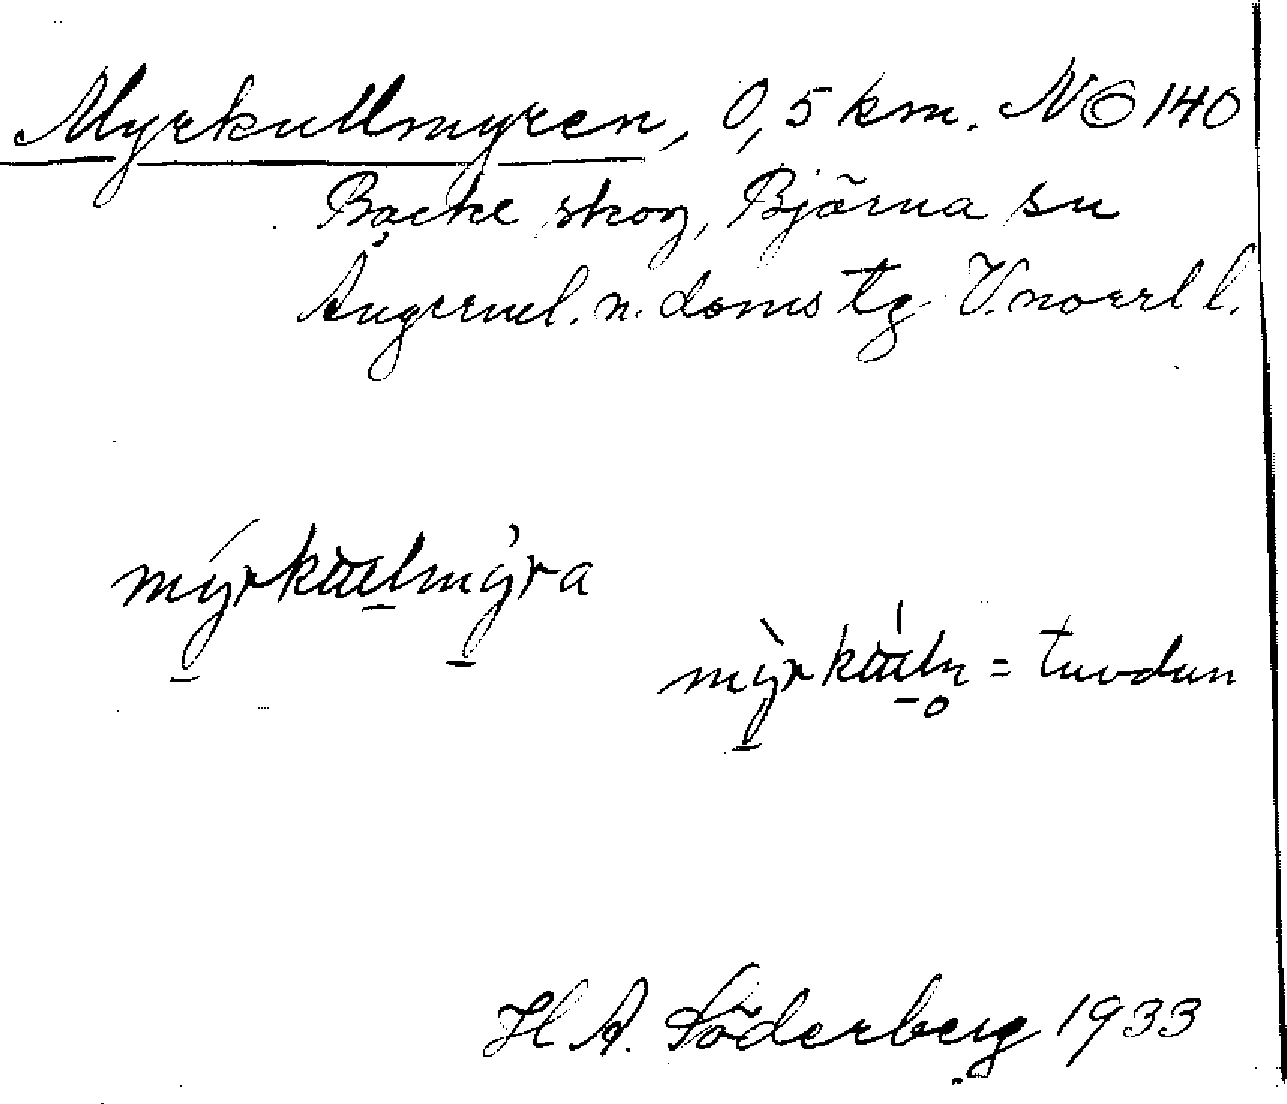 Myrkullmyren, 0,5 km. NÖ 140
Backe skog, Björna sn
Ångerml. n. doms tg V.norrl l.
mýrkullmỳra
= tuvdun
H A. Söderberg 1933